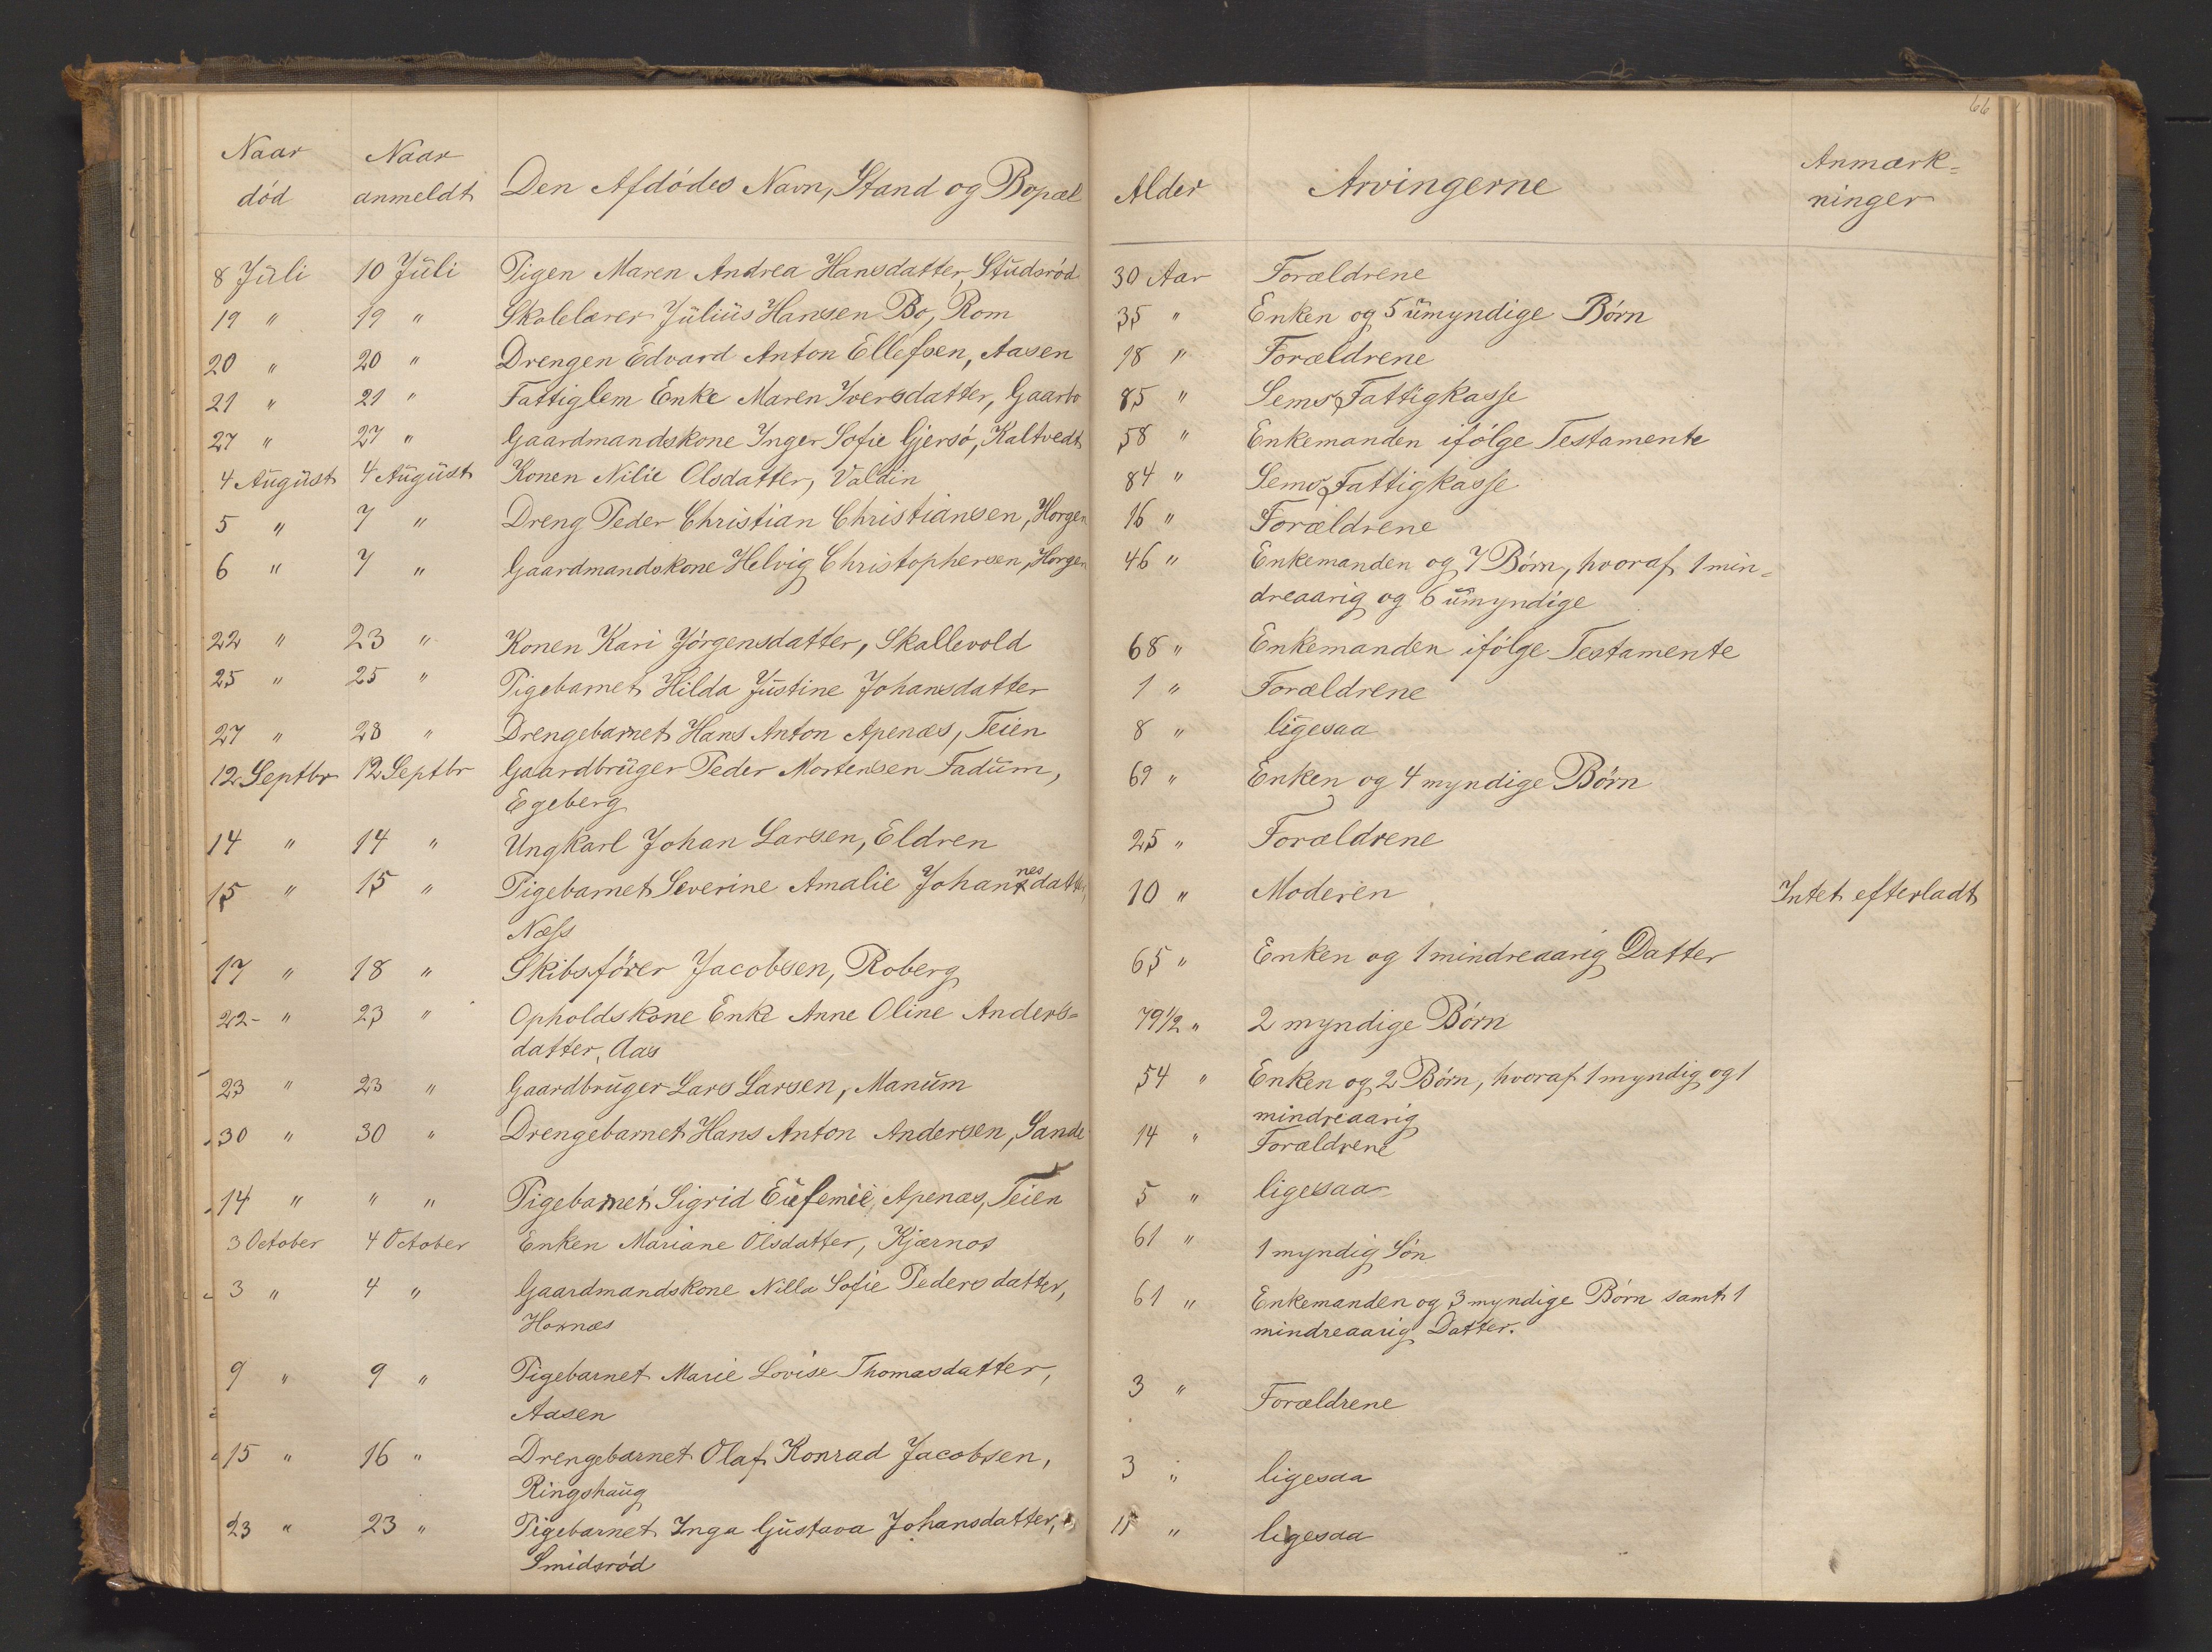 66
Naar død | Naar anmeldt | Den Afdødes Navn, Stand og Bopæl | Alder | Arvingerne | Anmærk-
ninger
8 Juli | 10 Juli | Pigen Maren Andrea Hansdatter, Studsrød | 30 Aar | Forældrene
19 " | 19 " | Skolelærer Julius Hansen Bø, Rom | 35 " | Enken og 5 umyndige Børn
20 " | 20 " | Drengen Edvard Anton Ellefsen, Aasen | 18 " | Forældrene
21 " | 21 " | Fattiglem Enke Maren Iversdatter, Gaarbo | 85 " | Sems Fattigkasse
27 " | 27 " | Gaardmandskone Inger Sofie Gjersø, Kaltvedt | 58 " | Enkemanden ifølge Testamente
4 August | 4 August | Konen Nilie Olsdatter, Valdin | 84 " | Sems Fattigkasse
5 " | 7 " | Dreng Peder Christian Christiansen, Horgen | 16 " | Forældrene
6 " | 7 " | Gaardmandskone Helvig Christophersen, Horgen | 46 " | Enkemanden og 7 Børn, hvoraf 1 min-
dreaarig og 6 umyndige
22 " | 23 " | Konen Kari Jørgensdatter, Skallevold | 68 " | Enkemanden ifølge Testamente
25 " | 25 " | Pigebarnet Hilda Justine Johansdatter | 1 " | Forældrene
27 " | 28 " | Drengebarnet Hans Anton Apenæs, Teien | 8 " | ligesaa
12 Septbr | 12 Septbr | Gaardbruger Peder Mortensen Fadum, | 69 " | Enken og 4 myndige Børn
Egeberg
14 " | 14 " | Ungkarl Johan Larsen, Eldren | 25 " | Forældrene
15 " | 15 " | Pigebarnet Severine Amalie Johannesdatter, | 10 " | Moderen | Intet efterladt
Næss
17 " | 18 " | Skibsfører Jacobsen, Roberg | 65 " | Enken og 1 mindreaarig Datter
22 - " | 23 " | Opholdskone Enke Anne Oline Anders- | 79 1/2 " | 2 myndige Børn
datter, Aas
23 " | 23 " | Gaardbruger Lars Larsen, Manum | 54 " | Enken og 2 Børn, hvoraf 1 myndig og 1
mindreaarig
30 " | 30 " | Drengebarnet Hans Anton Andersen, Sande | 14 " | Forældrene
14 " | " " | Pigebarnet Sigrid Eufemie, Apenæs, Teien | 5 " | ligesaa
3 October | 4 October | Enken Mariane Olsdatter, Kjærnøs | 61 " | 1 myndig Søn
3 " | 4 " | Gaardmandskone Nilla Sofie Pedersdatter, | 61 " | Enkemanden og 3 myndige Børn samt 1
Hornæs | mindreaarig Datter.
9 " | 9 " | Pigebarnet Marie Lovise Thomasdatter, | 3 " | Forældrene
Aasen
15 " | 16 " | Drengebarnet Olaf Konrad Jacobsen, | 3 " | ligesaa
Ringshaug
23 " | 23 " | Pigebarnet Inga Gustava Johansdatter, | " | ligesaa
Smidsrød